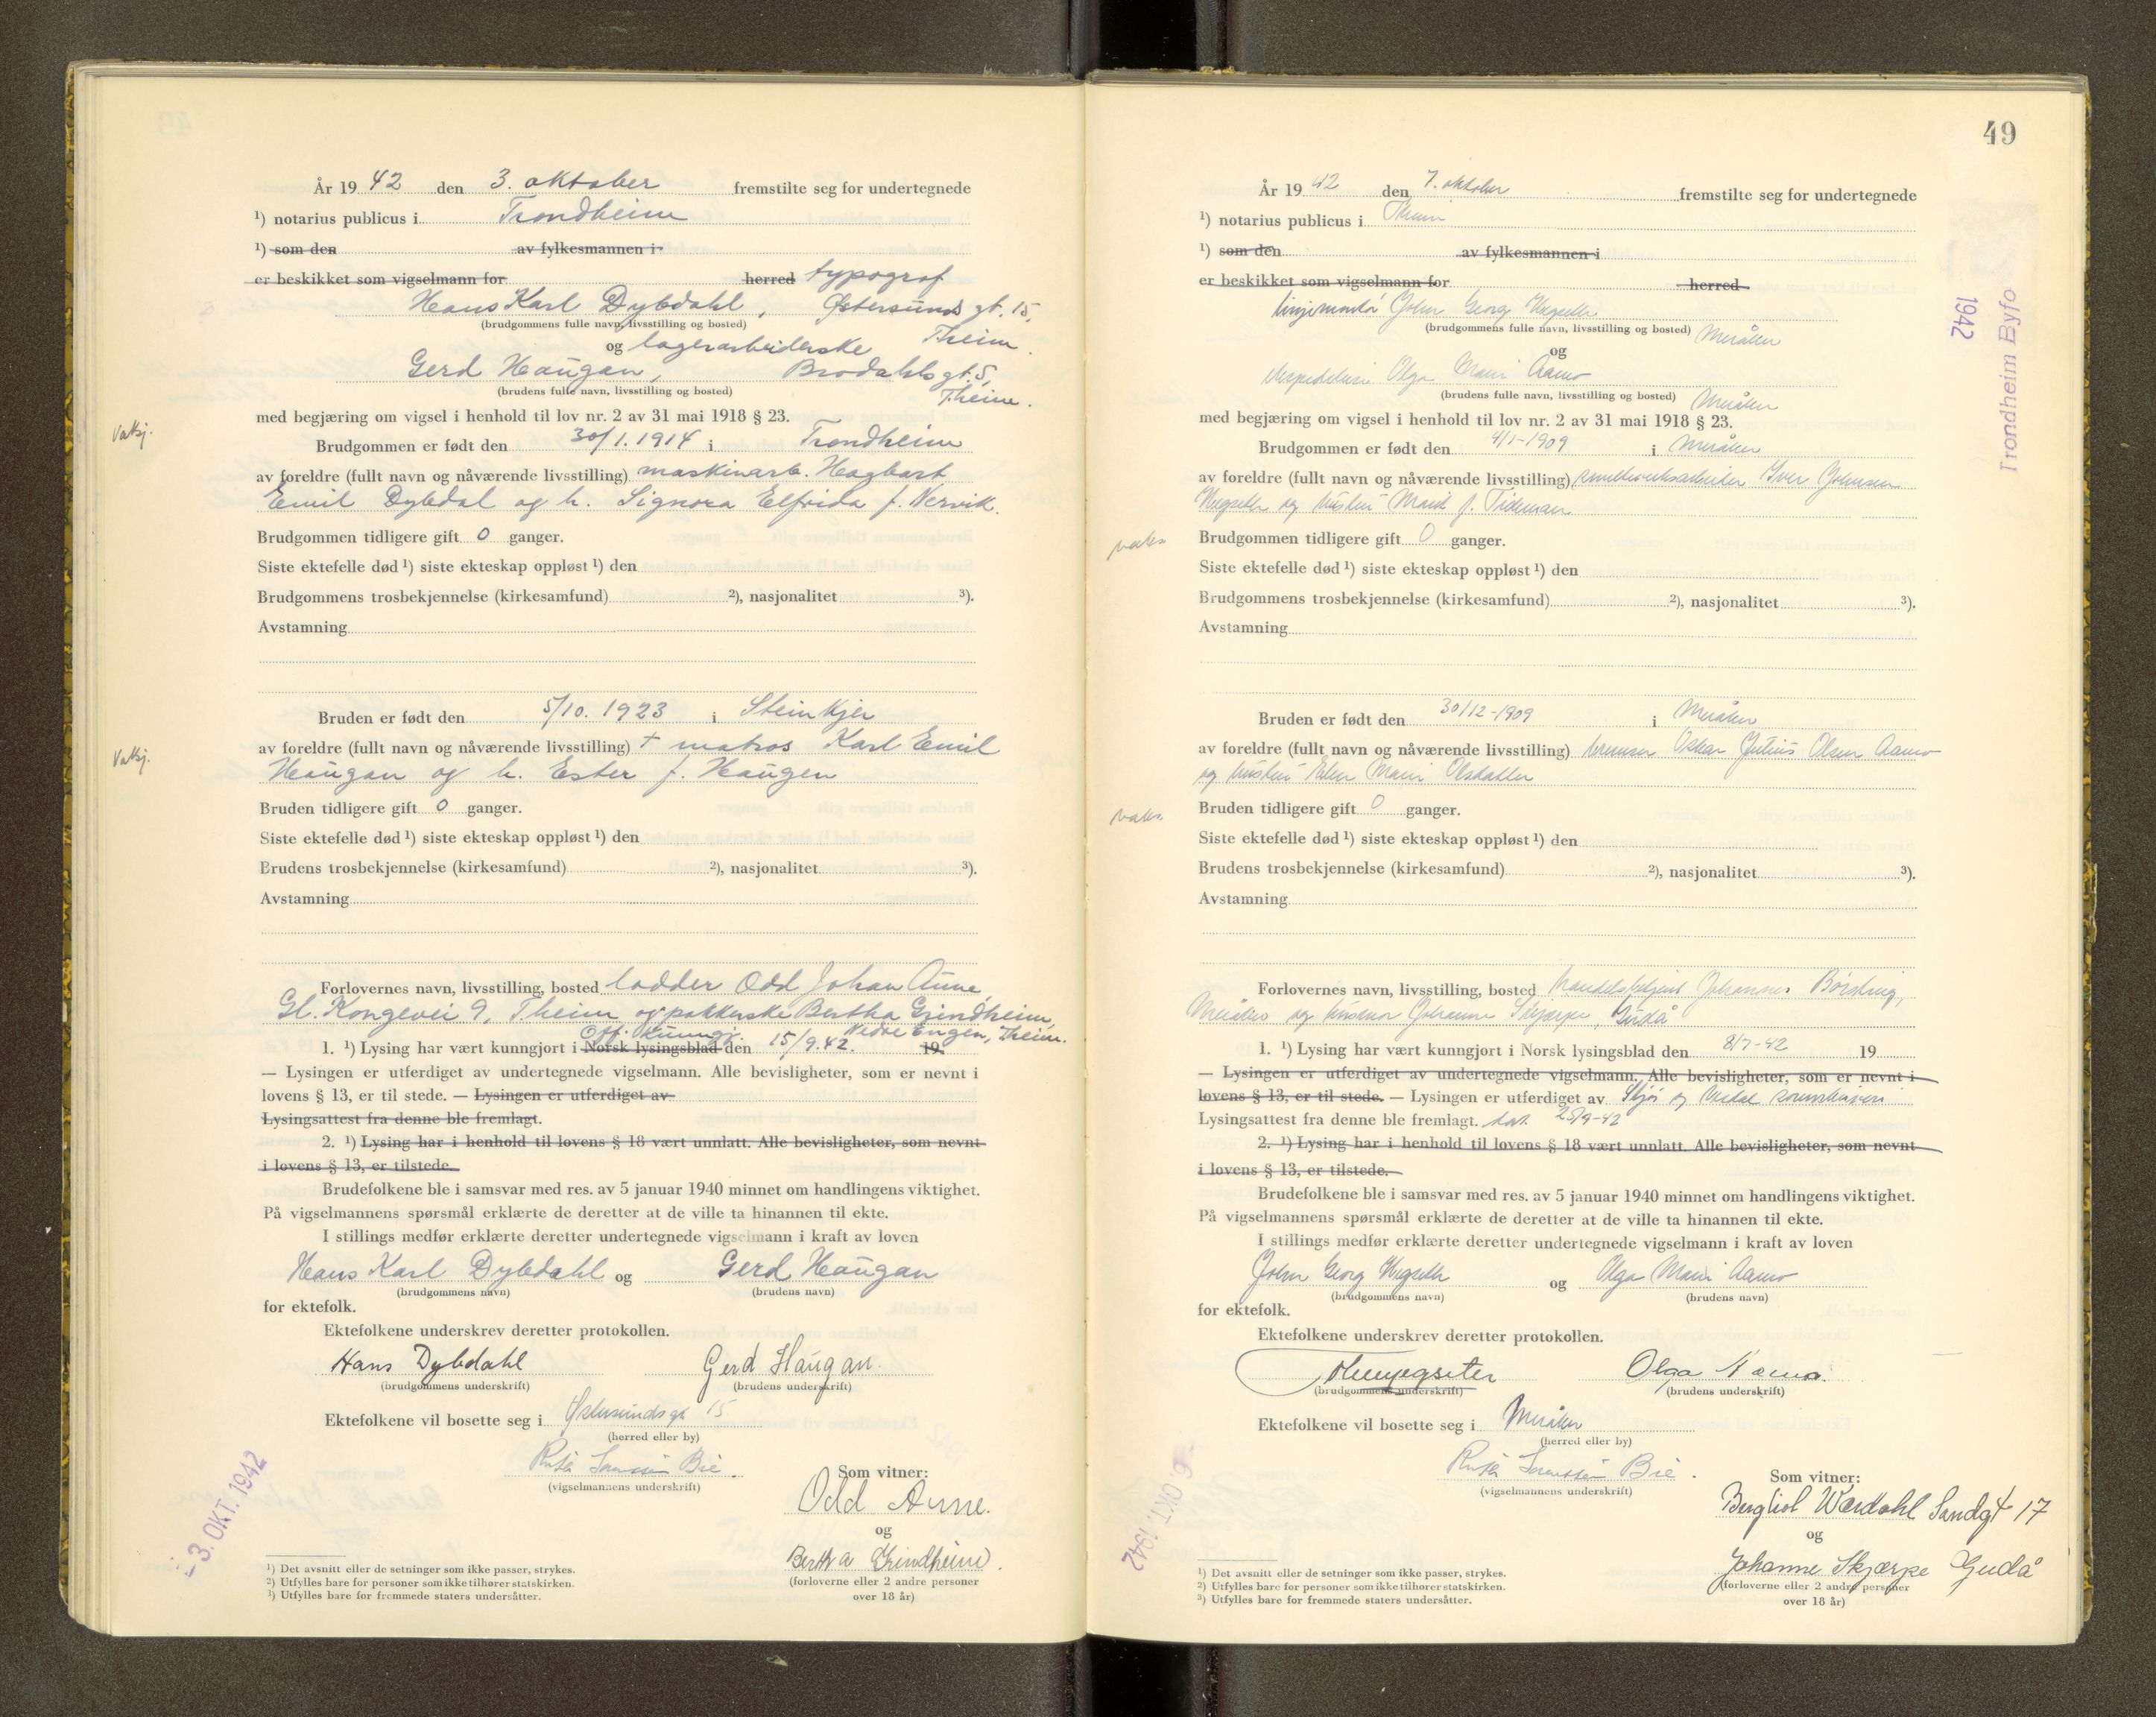 År 19 42 den 3. oktober fremstilte seg for undertegnede
¹) notarius publicus i Trondheim
¹) som den av fylkesmannen i
er beskikket som vigselmann for herred typograf
Hans Karl Dybdahl, Østersunds gt. 15,
(brudgommens fulle navn, livsstilling og bosted)
og lagerarbeiderske T.heim.
Gerd Haugan, Brodahls gt. 5,
(brudens fulle navn, livsstilling og bosted) T.heim.
med begjæring om vigsel i henhold til lov nr. 2 av 31 mai 1918 § 23.
Vaksj.
Brudgommen er født den 30/1. 1914 i Trondheim
av foreldre (fullt navn og nåværende livsstilling) maskinarb. Hagbart
Emil Dybdal og h. Signora Elfrida f. Nervik.
Brudgommen tidligere gift 0 ganger.
Siste ektefelle død ¹) siste ekteskap oppløst ¹) den
Brudgommens trosbekjennelse (kirkesamfund) ²), nasjonalitet ³).
Avstamning
Bruden er født den 5/10. 1923 i Steinkjer
Vaksj.
av foreldre (fullt navn og nåværende livsstilling) + matros Karl Emil
Haugan og h. Ester f. Haugen
Bruden tidligere gift 0 ganger.
Siste ektefelle død ¹) siste ekteskap oppløst ¹) den
Brudens trosbekjennelse (kirkesamfund) ²), nasjonalitet ³).
Avstamning
Forlovernes navn, livsstilling, bosted lodder Odd Johan Aune
Gl. Kongevei 9, T.heim og pakkerske Bertha Grindheim,
Off. kunngj. Nedre Engen, T.heim.
1. ¹) Lysing har vært kunngjort i Norsk lysingsblad den 15/9.42. 19
— Lysingen er utferdiget av undertegnede vigselmann. Alle bevisligheter, som er nevnt i
lovens § 13, er til stede. — Lysingen er utferdiget av
Lysingsattest fra denne ble fremlagt.
2. ¹) Lysing har i henhold til lovens § 18 vært unnlatt. Alle bevisligheter, som nevnt
i lovens § 13, er tilstede.
Brudefolkene ble i samsvar med res. av 5 januar 1940 minnet om handlingens viktighet.
På vigselmannens spørsmål erklærte de deretter at de ville ta hinannen til ekte.
I stillings medfør erklærte deretter undertegnede vigselmann i kraft av loven
Hans Karl Dybdahl og Gerd Haugan
(brudgommens navn) (brudens navn)
for ektefolk.
Ektefolkene underskrev deretter protokollen.
Hans Dybdahl Gerd Haugan.
(brudgommens underskrift) (brudens underskrift)
Ektefolkene vil bosette seg i Østersundsgt 15
(herred eller by)
Bie.
(vigselmannens underskrift)
Som vitner:
Odd Aune.
og
Bertha Grindheim.
(forloverne eller 2 andre personer
over 18 år)
- 3. OKT. 1942
¹) Det avsnitt eller de setninger som ikke passer, strykes.
²) Utfylles bare for personer som ikke tilhører statskirken.
³) Utfylles bare for fremmede staters undersåtter.
49
Trondheim Byfo
1942
År 19 42 den 7. oktober fremstilte seg for undertegnede
¹) notarius publicus i Theim
¹) som den av fylkesmannen i
er beskikket som vigselmann for herred
linjemontør John Georg Hegseth
(brudgommens fulle navn, livsstilling og bosted) Meråker
og
ekspeditrise Olga Marie Aamo
(brudens fulle navn, livsstilling og bosted) Meråker
med begjæring om vigsel i henhold til lov nr. 2 av 31 mai 1918 § 23.
Brudgommen er født den 4/1-1909 i Meråker
av foreldre (fullt navn og nåværende livsstilling) smelteverksarbeider Iver Johnsen
Hegseth og hustru f. Tideman
vaks.
Brudgommen tidligere gift 0 ganger.
Siste ektefelle død ¹) siste ekteskap oppløst ¹) den
Brudgommens trosbekjennelse (kirkesamfund) ²), nasjonalitet ³).
Avstamning
Bruden er født den 30/12-1909 i Meråker
av foreldre (fullt navn og nåværende livsstilling) bremser Oskar Julius Olsen Aamo
og hustru Marie Olsdatter
vaks.
Bruden tidligere gift 0 ganger.
Siste ektefelle død ¹) siste ekteskap oppløst ¹) den
Brudens trosbekjennelse (kirkesamfund) ²), nasjonalitet ³).
Avstamning
Forlovernes navn, livsstilling, bosted handelsbetjent Johannes
Meråker og husmor Johanne Skjærpe, Gudå
1. ¹) Lysing har vært kunngjort i Norsk lysingsblad den 8/7-42 19
— Lysingen er utferdiget av undertegnede vigselmann. Alle bevisligheter, som er nevnt i
lovens § 13, er til stede. — Lysingen er utferdiget av og sorenskriveri
Lysingsattest fra denne ble fremlagt. dat. 25/9-42
2. ¹) Lysing har i henhold til lovens § 18 vært unnlatt. Alle bevisligheter, som nevnt
i lovens § 13, er tilstede.
Brudefolkene ble i samsvar med res. av 5 januar 1940 minnet om handlingens viktighet.
På vigselmannens spørsmål erklærte de deretter at de ville ta hinannen til ekte.
I stillings medfør erklærte deretter undertegnede vigselmann i kraft av loven
John Georg Hegseth og Olga Marie Aamo
(brudgommens navn) (brudens navn)
for ektefolk.
Ektefolkene underskrev deretter protokollen.
Olga Aamo.
(brudgommens underskrift) (brudens underskrift)
Ektefolkene vil bosette seg i Meråker
(herred eller by)
Bie.
(vigselmannens underskrift)
Som vitner:
Bergliot Wærdahl Sandgt 17
og
Johanne Skjærpe Gudå
(forloverne eller 2 andre personer
over 18 år)
OKT. 1942
¹) Det avsnitt eller de setninger som ikke passer, strykes.
²) Utfylles bare for personer som ikke tilhører statskirken.
³) Utfylles bare for fremmede staters undersåtter.